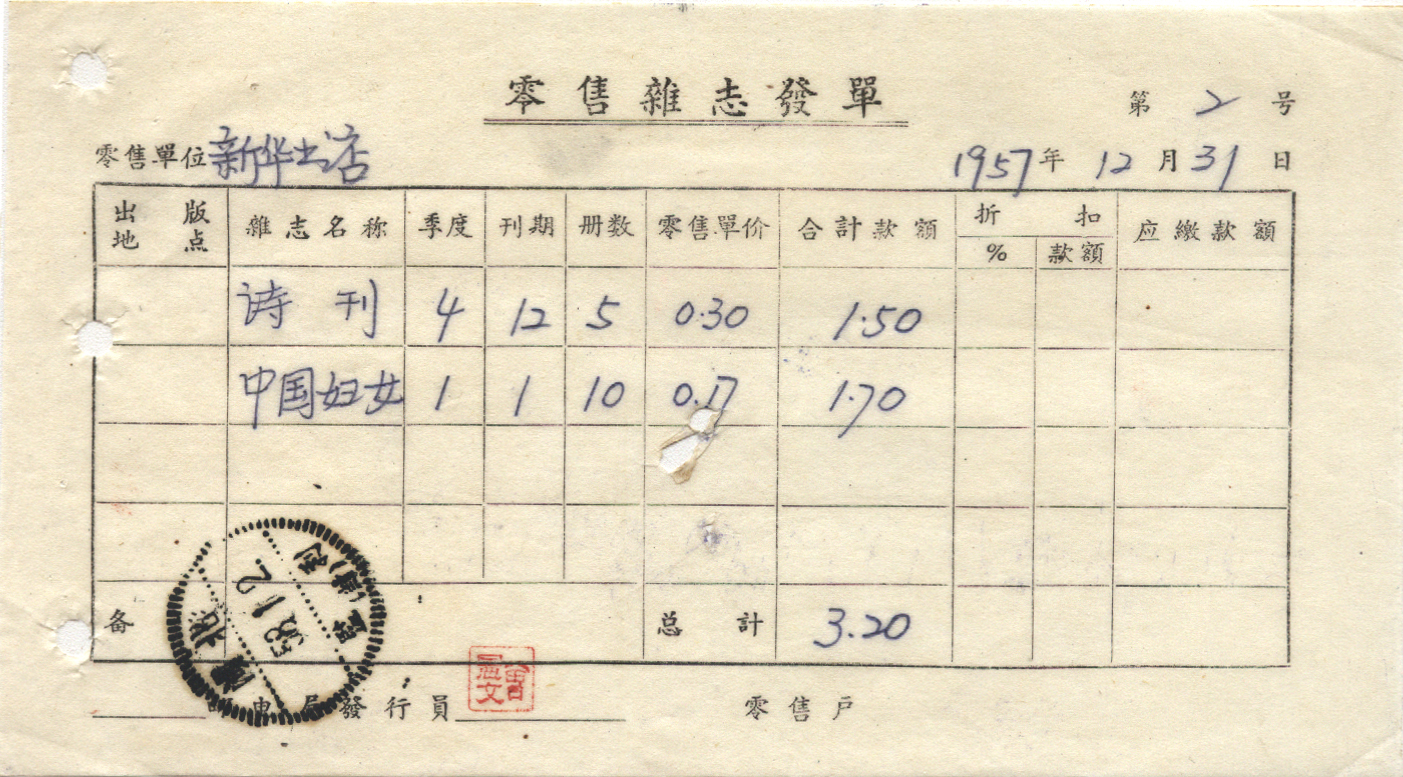 零售雜志發單
第 2 号
零售單位 新华书店
1957年 12月 31日
出版地点 雜志名称 季度 刊期 册数 零售單价 合計款額 折扣 % 款額 应繳款額
诗刊 4 12 5 0.30 1.50
中国妇女 1 1 10 0.17 1.70
备 总計 3.20
58.1.2
局發行員 零售戶